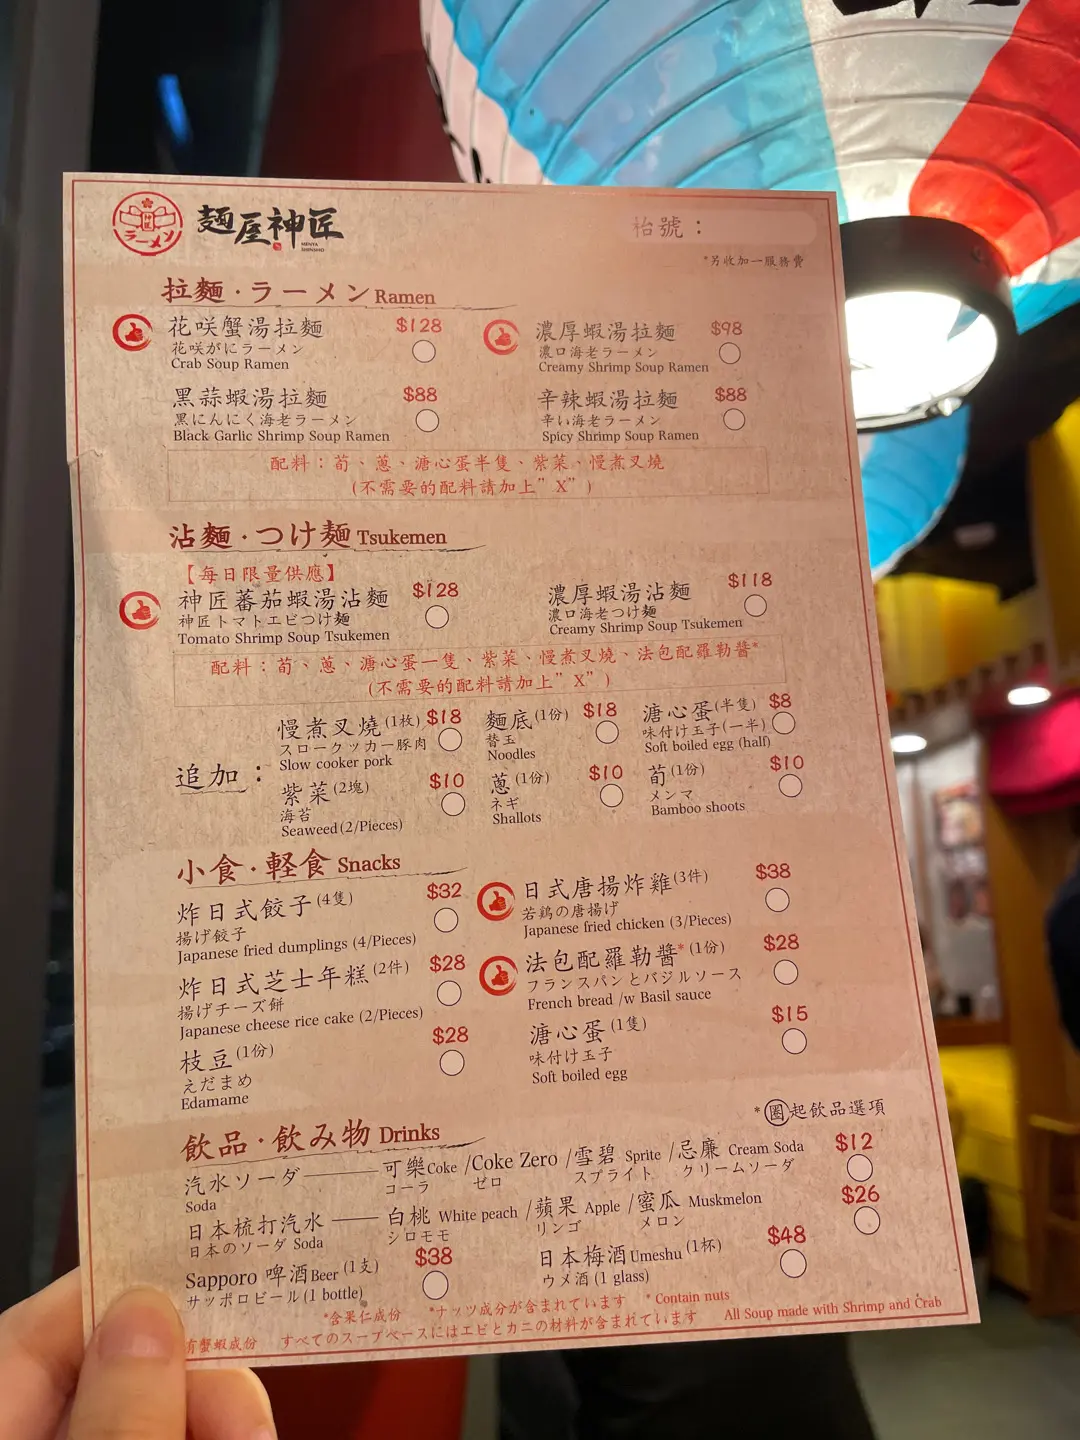 ラーメン
麵屋神匠
MENYA SHINSHO
枱號：
*另收加一服務費
拉麵・ラーメン Ramen
花咲蟹湯拉麵 $128
花咲がにラーメン
Crab Soup Ramen
濃厚蝦湯拉麵 $98
濃口海老ラーメン
Creamy Shrimp Soup Ramen
黑蒜蝦湯拉麵 $88
黒にんにく海老ラーメン
Black Garlic Shrimp Soup Ramen
辛辣蝦湯拉麵 $88
辛い海老ラーメン
Spicy Shrimp Soup Ramen
配料：荀、蔥、溏心蛋半隻、紫菜、慢煮叉燒
(不需要的配料請加上”X”)
沾麵・つけ麵 Tsukemen
【每日限量供應】
神匠蕃茄蝦湯沾麵 $128
神匠トマトエビつけ麵
Tomato Shrimp Soup Tsukemen
濃厚蝦湯沾麵 $118
濃口海老つけ麵
Creamy Shrimp Soup Tsukemen
配料：荀、蔥、溏心蛋一隻、紫菜、慢煮叉燒、法包配羅勒醬*
(不需要的配料請加上”X”)
追加：
慢煮叉燒(1枚) $18
スロークッカー豚肉
Slow cooker pork
麵底(1份) $18
替玉
Noodles
溏心蛋(半隻) $8
味付け玉子(一半)
Soft boiled egg (half)
紫菜(2塊) $10
海苔
Seaweed(2/Pieces)
蔥(1份) $10
ネギ
Shallots
荀(1份) $10
メンマ
Bamboo shoots
小食・軽食 Snacks
炸日式餃子(4隻) $32
揚げ餃子
Japanese fried dumplings (4/Pieces)
日式唐揚炸雞(3件) $38
若鶏の唐揚げ
Japanese fried chicken (3/Pieces)
炸日式芝士年糕(2件) $28
揚げチーズ餅
Japanese cheese rice cake (2/Pieces)
法包配羅勒醬*(1份) $28
フランスパンとバジルソース
French bread /w Basil sauce
枝豆(1份) $28
えだまめ
Edamame
溏心蛋(1隻) $15
味付け玉子
Soft boiled egg
*圈起飲品選項
飲品・飲み物 Drinks
汽水ソーダ 可樂Coke /Coke Zero /雪碧 Sprite /忌廉 Cream Soda $12
Soda コーラ ゼロ スプライト クリームソーダ
日本梳打汽水 白桃 White peach /蘋果 Apple /蜜瓜 Muskmelon $26
日本のソーダ Soda シロモモ リンゴ メロン
Sapporo 啤酒Beer(1支) $38
サッポロビール(1 bottle)
日本梅酒Umeshu(1杯) $48
ウメ酒 (1 glass)
*含果仁成份 *ナッツ成分が含まれています * Contain nuts
有蟹蝦成份 すべてのスープベースにはエビとカニの材料が含まれています All Soup made with Shrimp and Crab